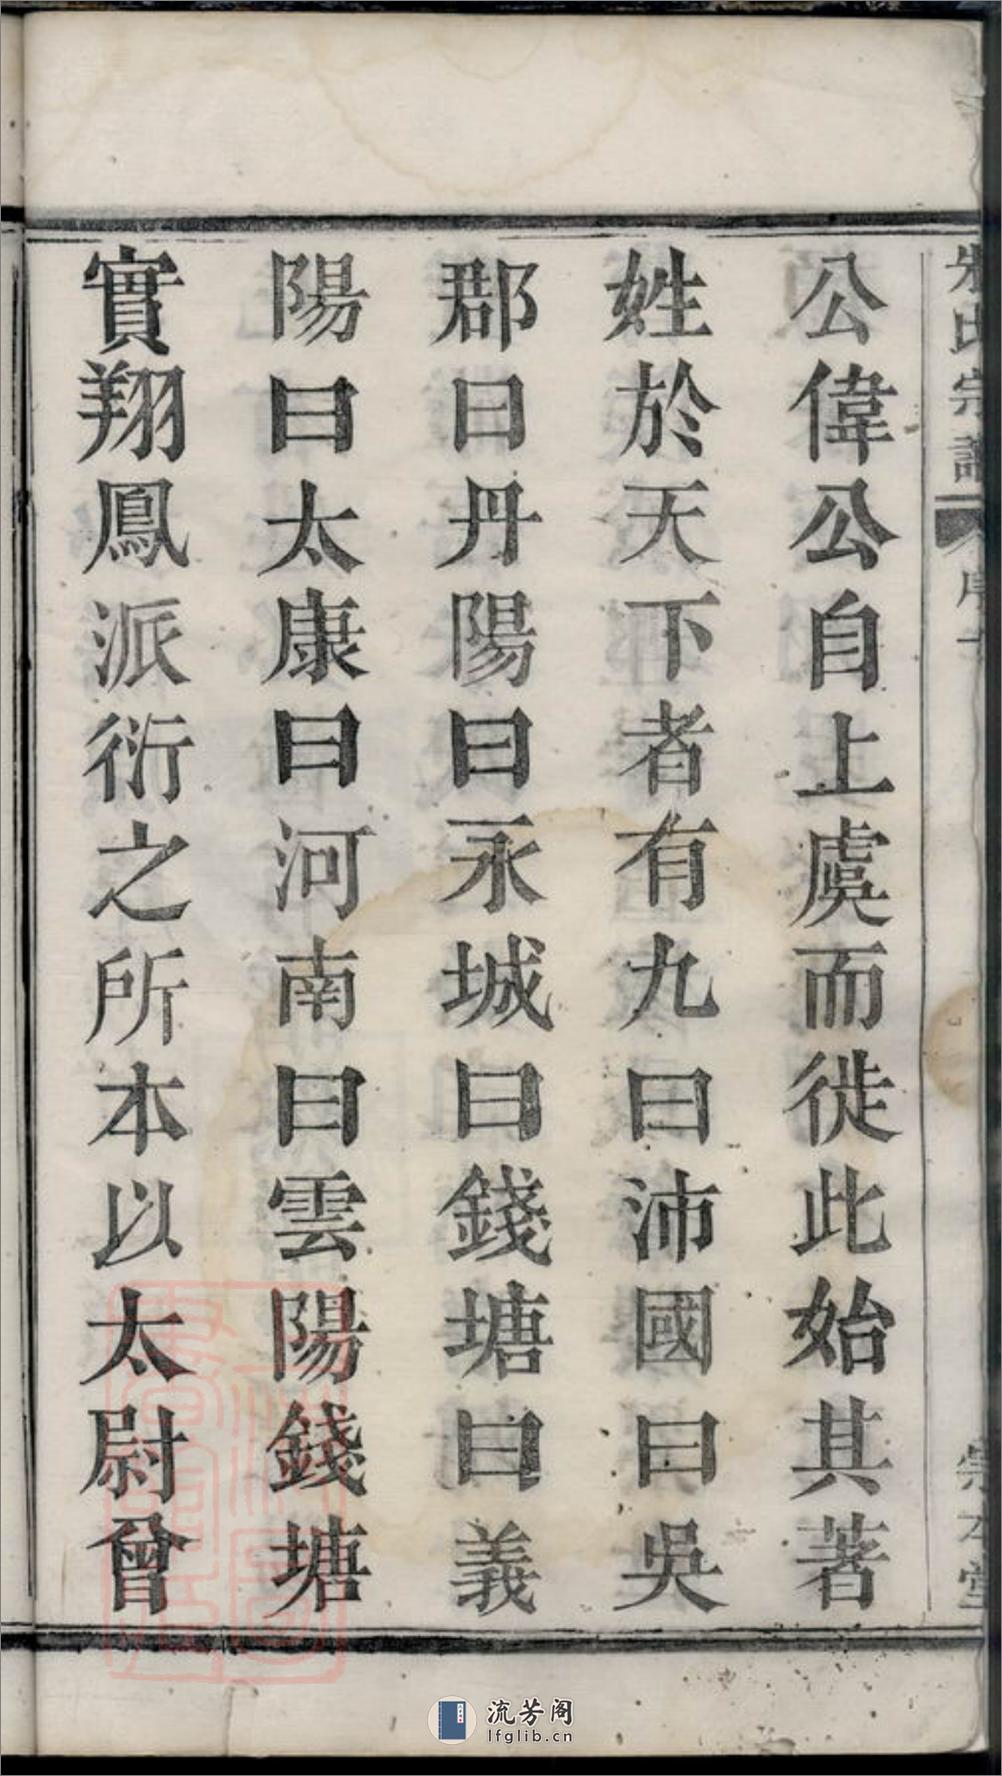 朱氏宗譜
序
宗本堂
公偉公自上虞而徙此始其著
姓於天下者有九曰沛國曰吳
郡曰丹陽曰永城曰錢塘曰義
陽曰太康曰河南曰雲陽錢塘
實翔鳳派衍之所本以太尉曾
流芳阁
lfglib.cn